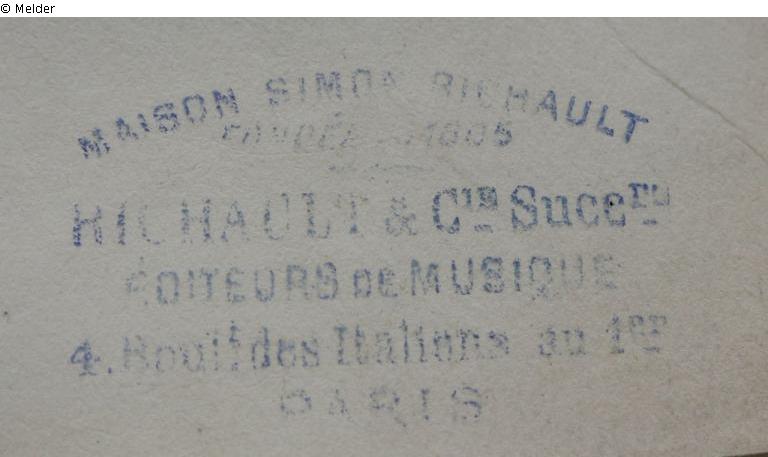 © Melder
MAISON SIMON RICHAULT
FONDÉE EN 1805
RICHAULT & Cie Succrs
ÉDITEURS DE MUSIQUE
4. Boult des Italiens au 1er
PARIS